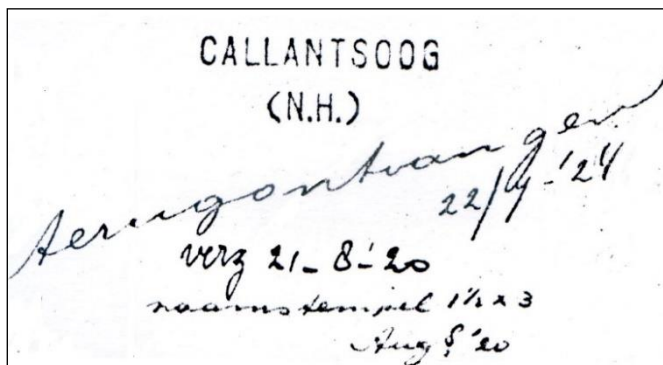 CALLANTSOOG
(N.H.)
terugontvangen
22/4-'24
verz 21-8-'20
naamstempel 1½ x 3
Aug '20